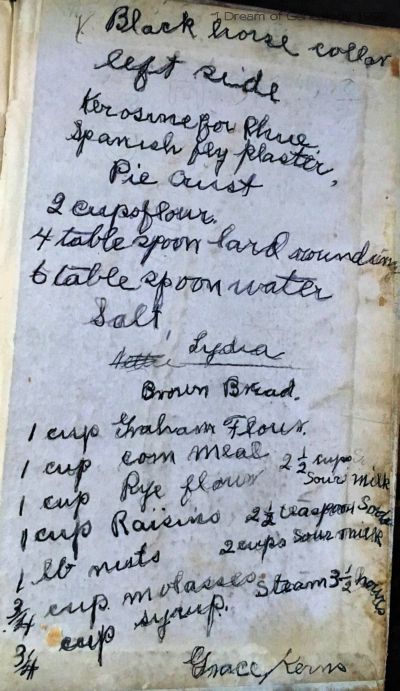 I Dream of Gen
Black horse collar
left side
Kerosine for Rhue.
Spanish fly plaster,
Pie Crust
2 cups flour.
4 table spoon lard rounding
6 table spoon water
Salt,
Lydia
Brown Bread.
1 cup Graham Flour.
1 cup corn meal
1 cup Rye flour 2 1/2 cups
Sour milk
1 cup Raisins 2 1/2 teaspoon Soda
1 lb nuts 2 cups sour milk
3/4 cup molasses. Steam 3 1/2 hours
3/4 cup syrup.
Grace Kerns